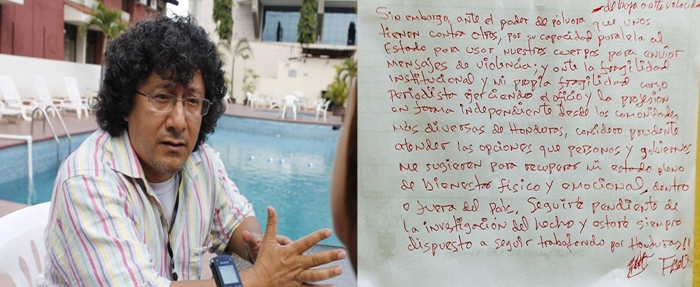 de bajo o alta velocidad
Sin embargo, ante el poder de pólvora que unos
tienen contra otros, por su capacidad paralela al
Estado para usar nuestros cuerpos para enviar
mensajes de violencia; y ante la fragilidad
institucional y mi propia fragilidad como
periodista ejerciendo el oficio y la profesión
en forma independiente desde las comunidades
más diversas de Honduras, considero prudente
atender las opciones que personas y gobiernos
me sugieren para recuperar mi estado pleno
de bienestar físico y emocional, dentro
o fuera del país. Seguiré pendiente de
la investigación del hecho y estaré siempre
dispuesto a seguir trabajando por Honduras!!